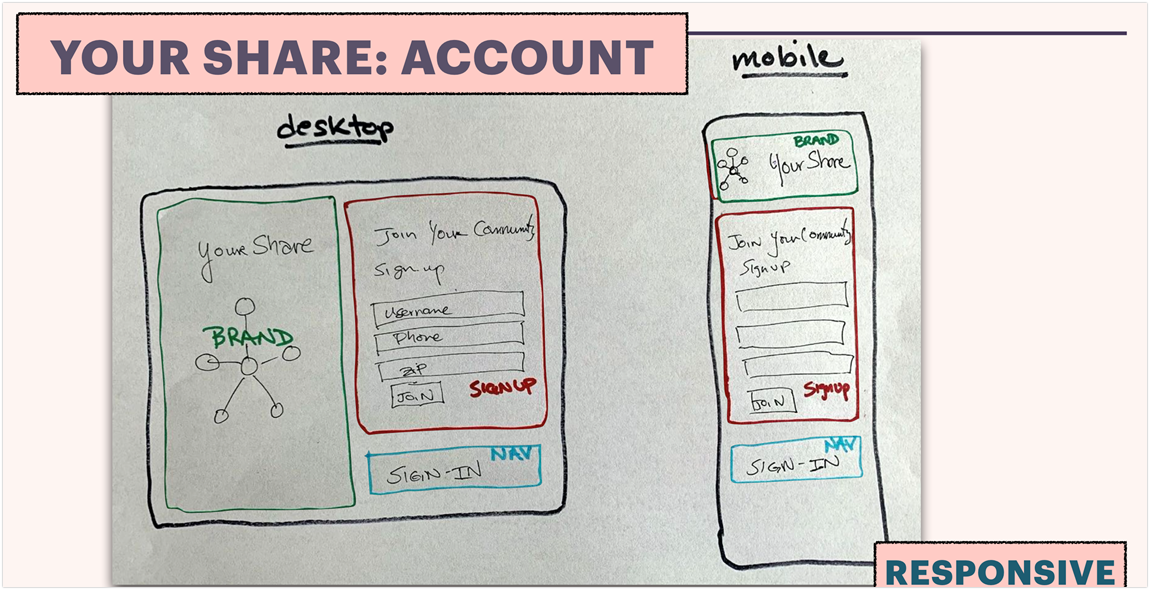 YOUR SHARE: ACCOUNT
desktop
Your Share
BRAND
Join Your Community
Sign up
username
Phone
zip
JOIN
SIGNUP
NAV
SIGN-IN
mobile
BRAND
Your Share
JOIN Your Community
Signup
JOIN
Signup
NAV
SIGN-IN
RESPONSIVE